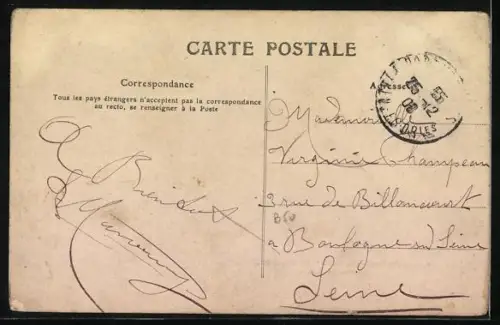 CARTE POSTALE
Correspondance
Tous les pays étrangers n'acceptent pas la correspondance
au recto, se renseigner à la Poste
Adresse
A
Bientot
Virginie Champeau
3 rue de Billancourt
a Boulogne s/ Seine
Seine